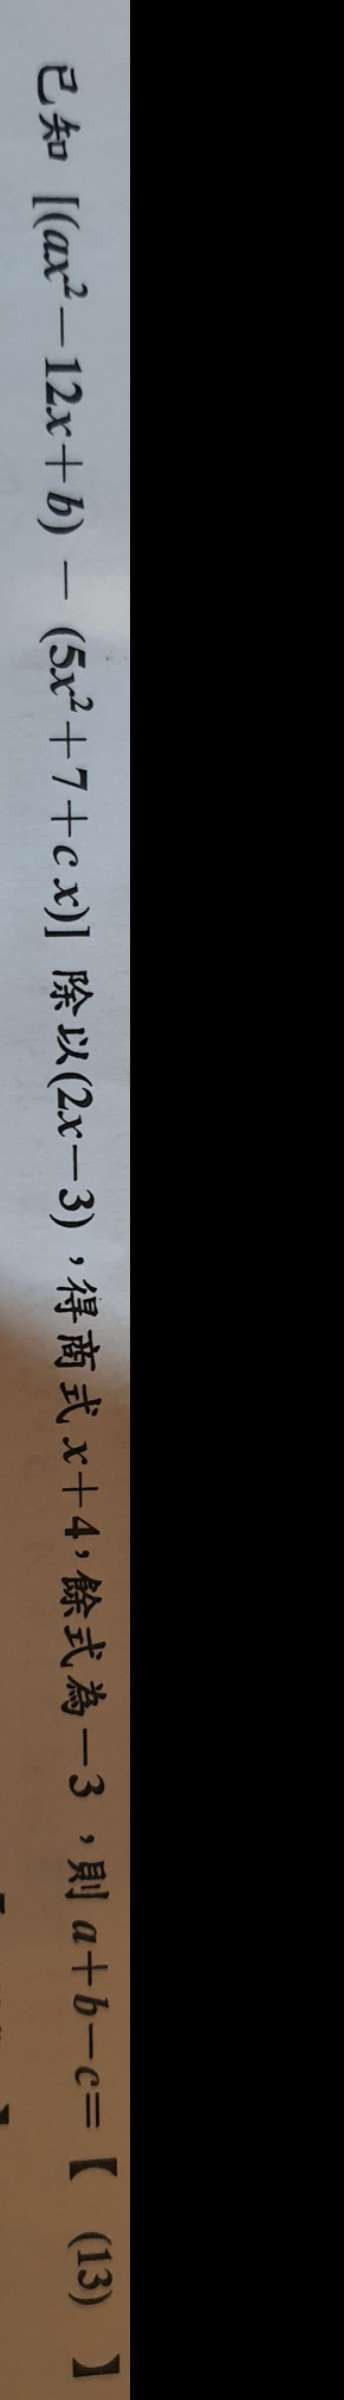 已知 [(ax²－12x＋b) － (5x²＋7＋c x)] 除以(2x－3)，得商式 x＋4，餘式為－3，則 a＋b－c＝【 (13) 】